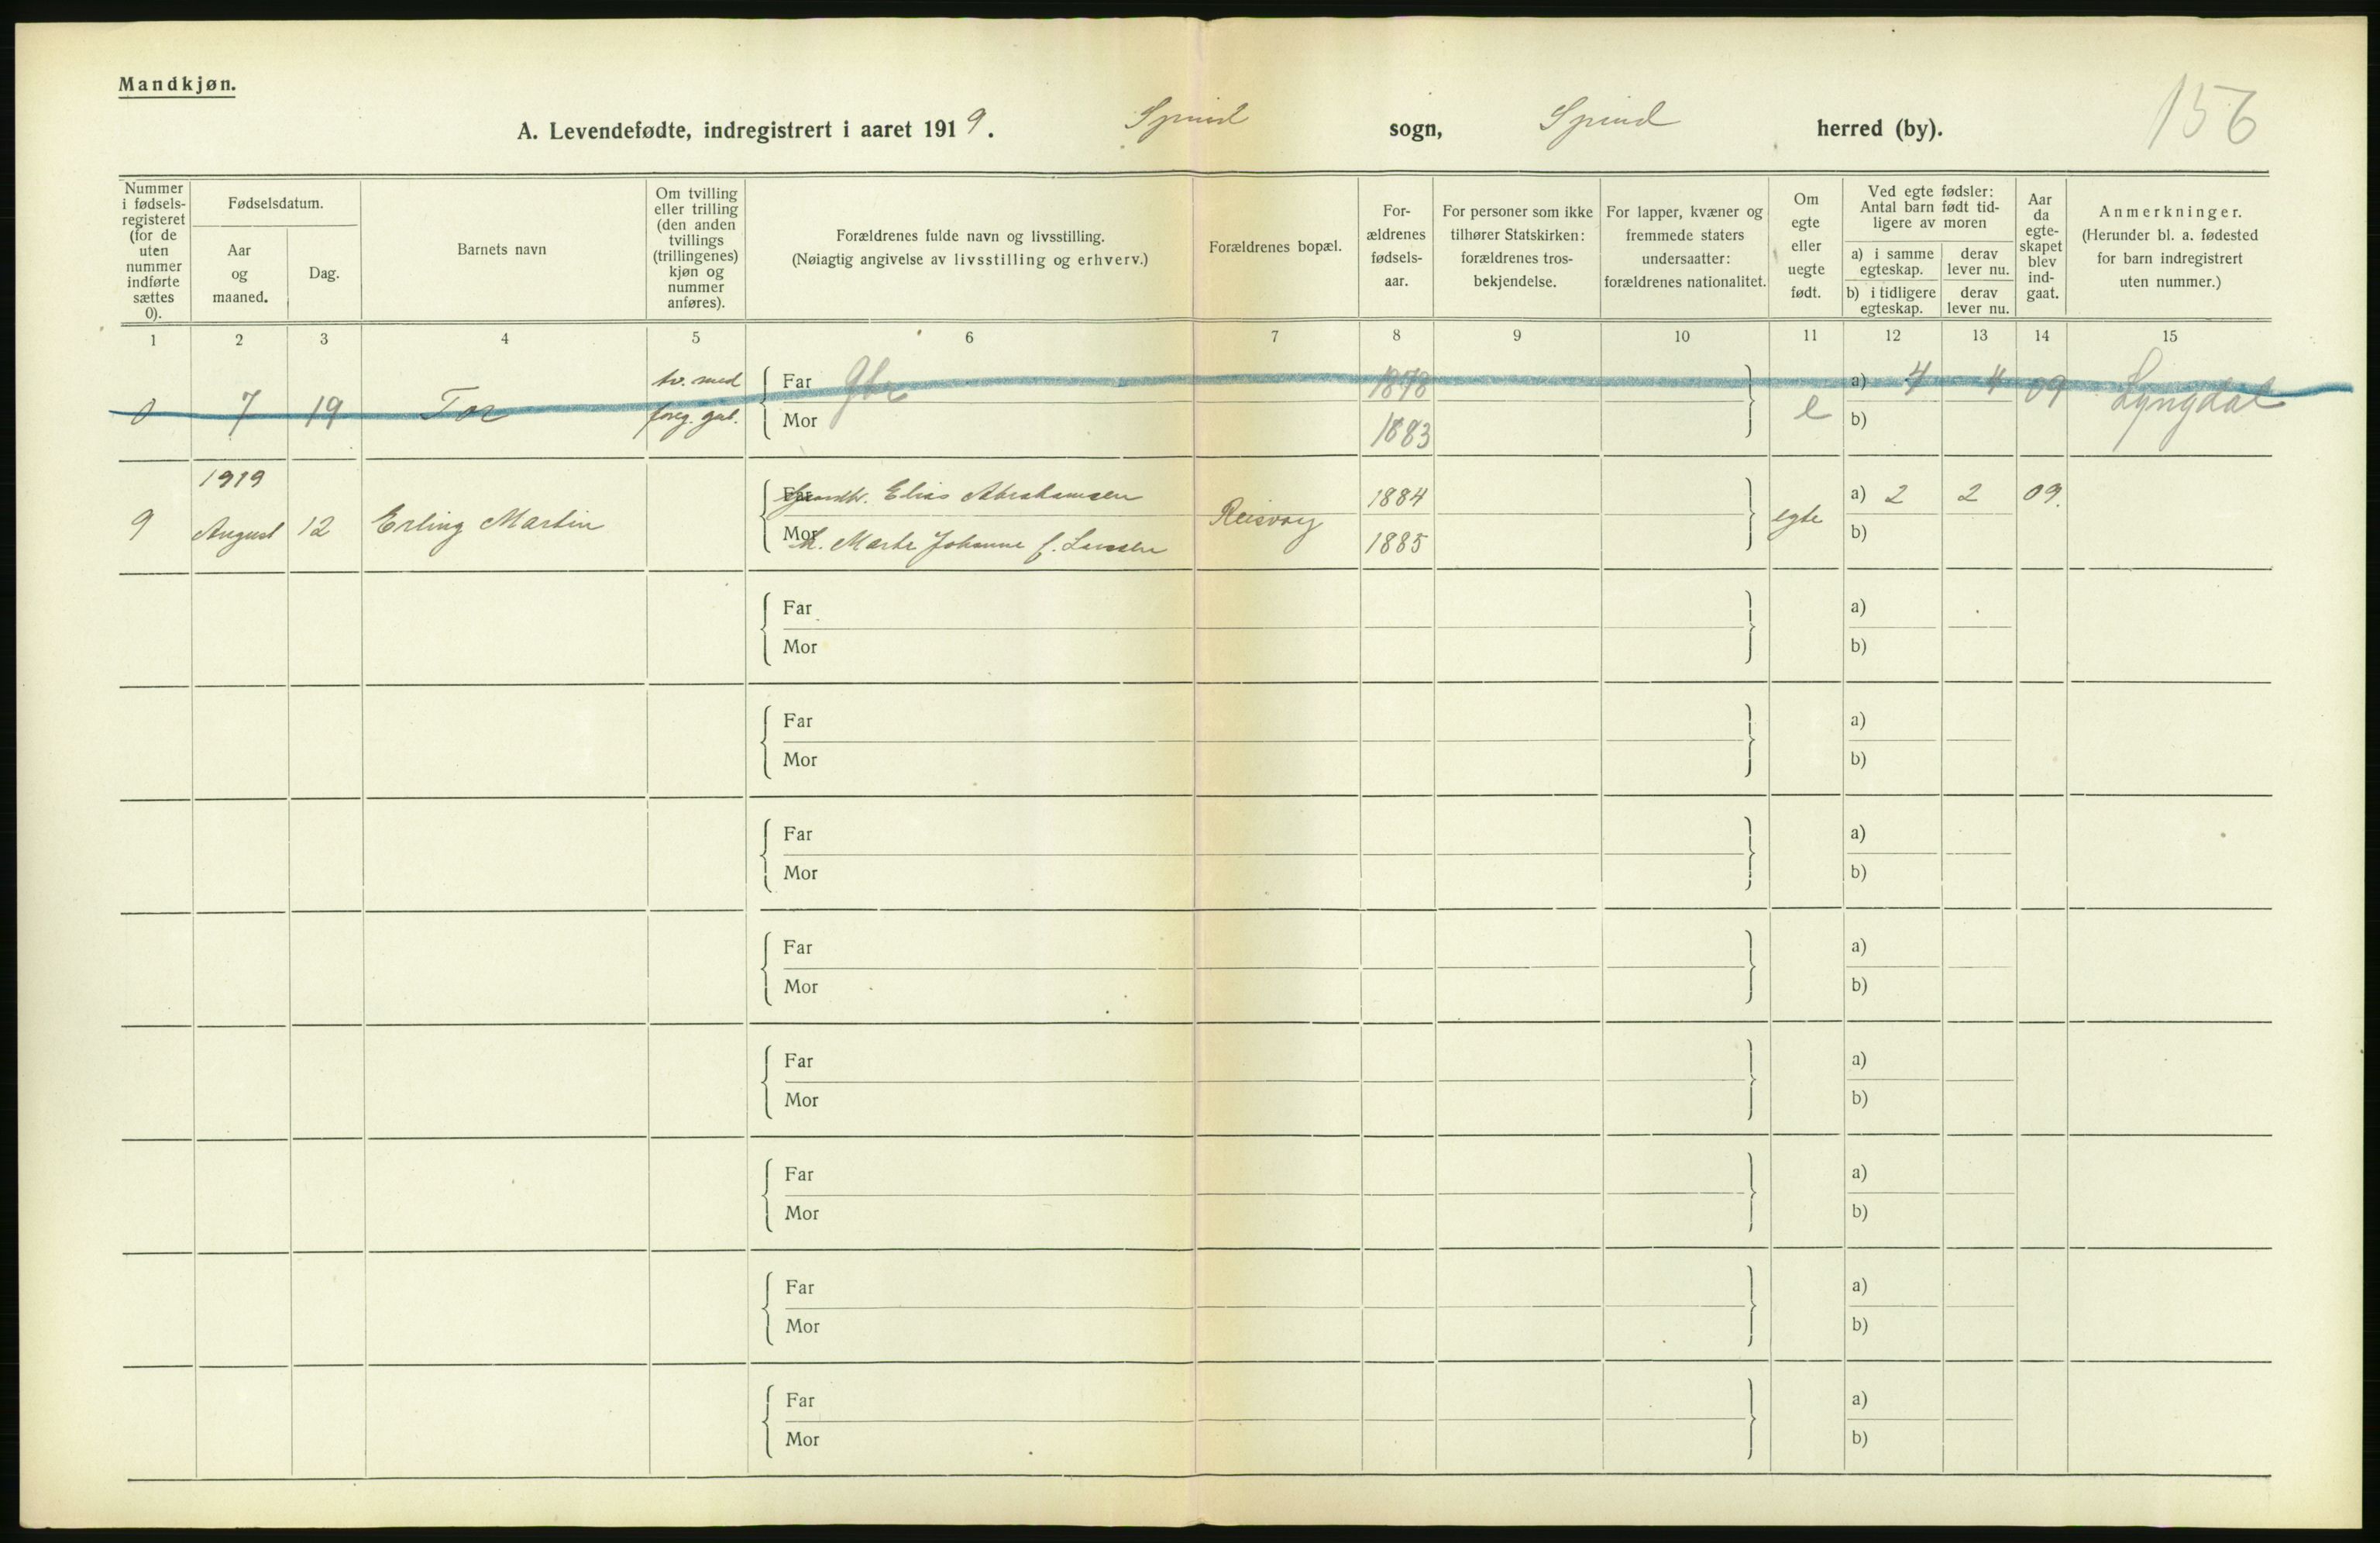 Mandkjøn.
A. Levendefødte, indregistrert i aaret 1919. Spind sogn, Spind herred (by).
156
Nummer i fødsels-registeret (for de uten nummer indførte sættes 0).
Fødselsdatum.
Aar og maaned.
Dag.
Barnets navn
Om tvilling eller trilling (den anden tvillings (trillingenes) kjøn og nummer anføres).
Forældrenes fulde navn og livsstilling.
(Nøiagtig angivelse av livsstilling og erhverv.)
Forældrenes bopæl.
For-ældrenes fødsels-aar.
For personer som ikke tilhører Statskirken: forældrenes tros-bekjendelse.
For lapper, kvæner og fremmede staters undersaatter: forældrenes nationalitet.
Om egte eller uegte født.
Ved egte fødsler: Antal barn født tid-ligere av moren
a) i samme egteskap.
derav lever nu.
b) i tidligere egteskap.
derav lever nu.
Aar da egte-skapet blev ind-gaat.
Anmerkninger.
(Herunder bl. a. fødested for barn indregistrert uten nummer.)
1 2 3 4 5 6 7 8 9 10 11 12 13 14 15
0 7 19 Tor tv. med foreg. Far Gbr 1878 e a) 4 4 09 Lyngdal
Mor 1883 b)
1919
9 August 12 Erling Martin Far Elias Abrahamsen 1884 egte a) 2 2 09.
Mor Marte Johanne f. 1885 b)
Far a)
Mor b)
Far a)
Mor b)
Far a)
Mor b)
Far a)
Mor b)
Far a)
Mor b)
Far a)
Mor b)
Far a)
Mor b)
Far a)
Mor b)